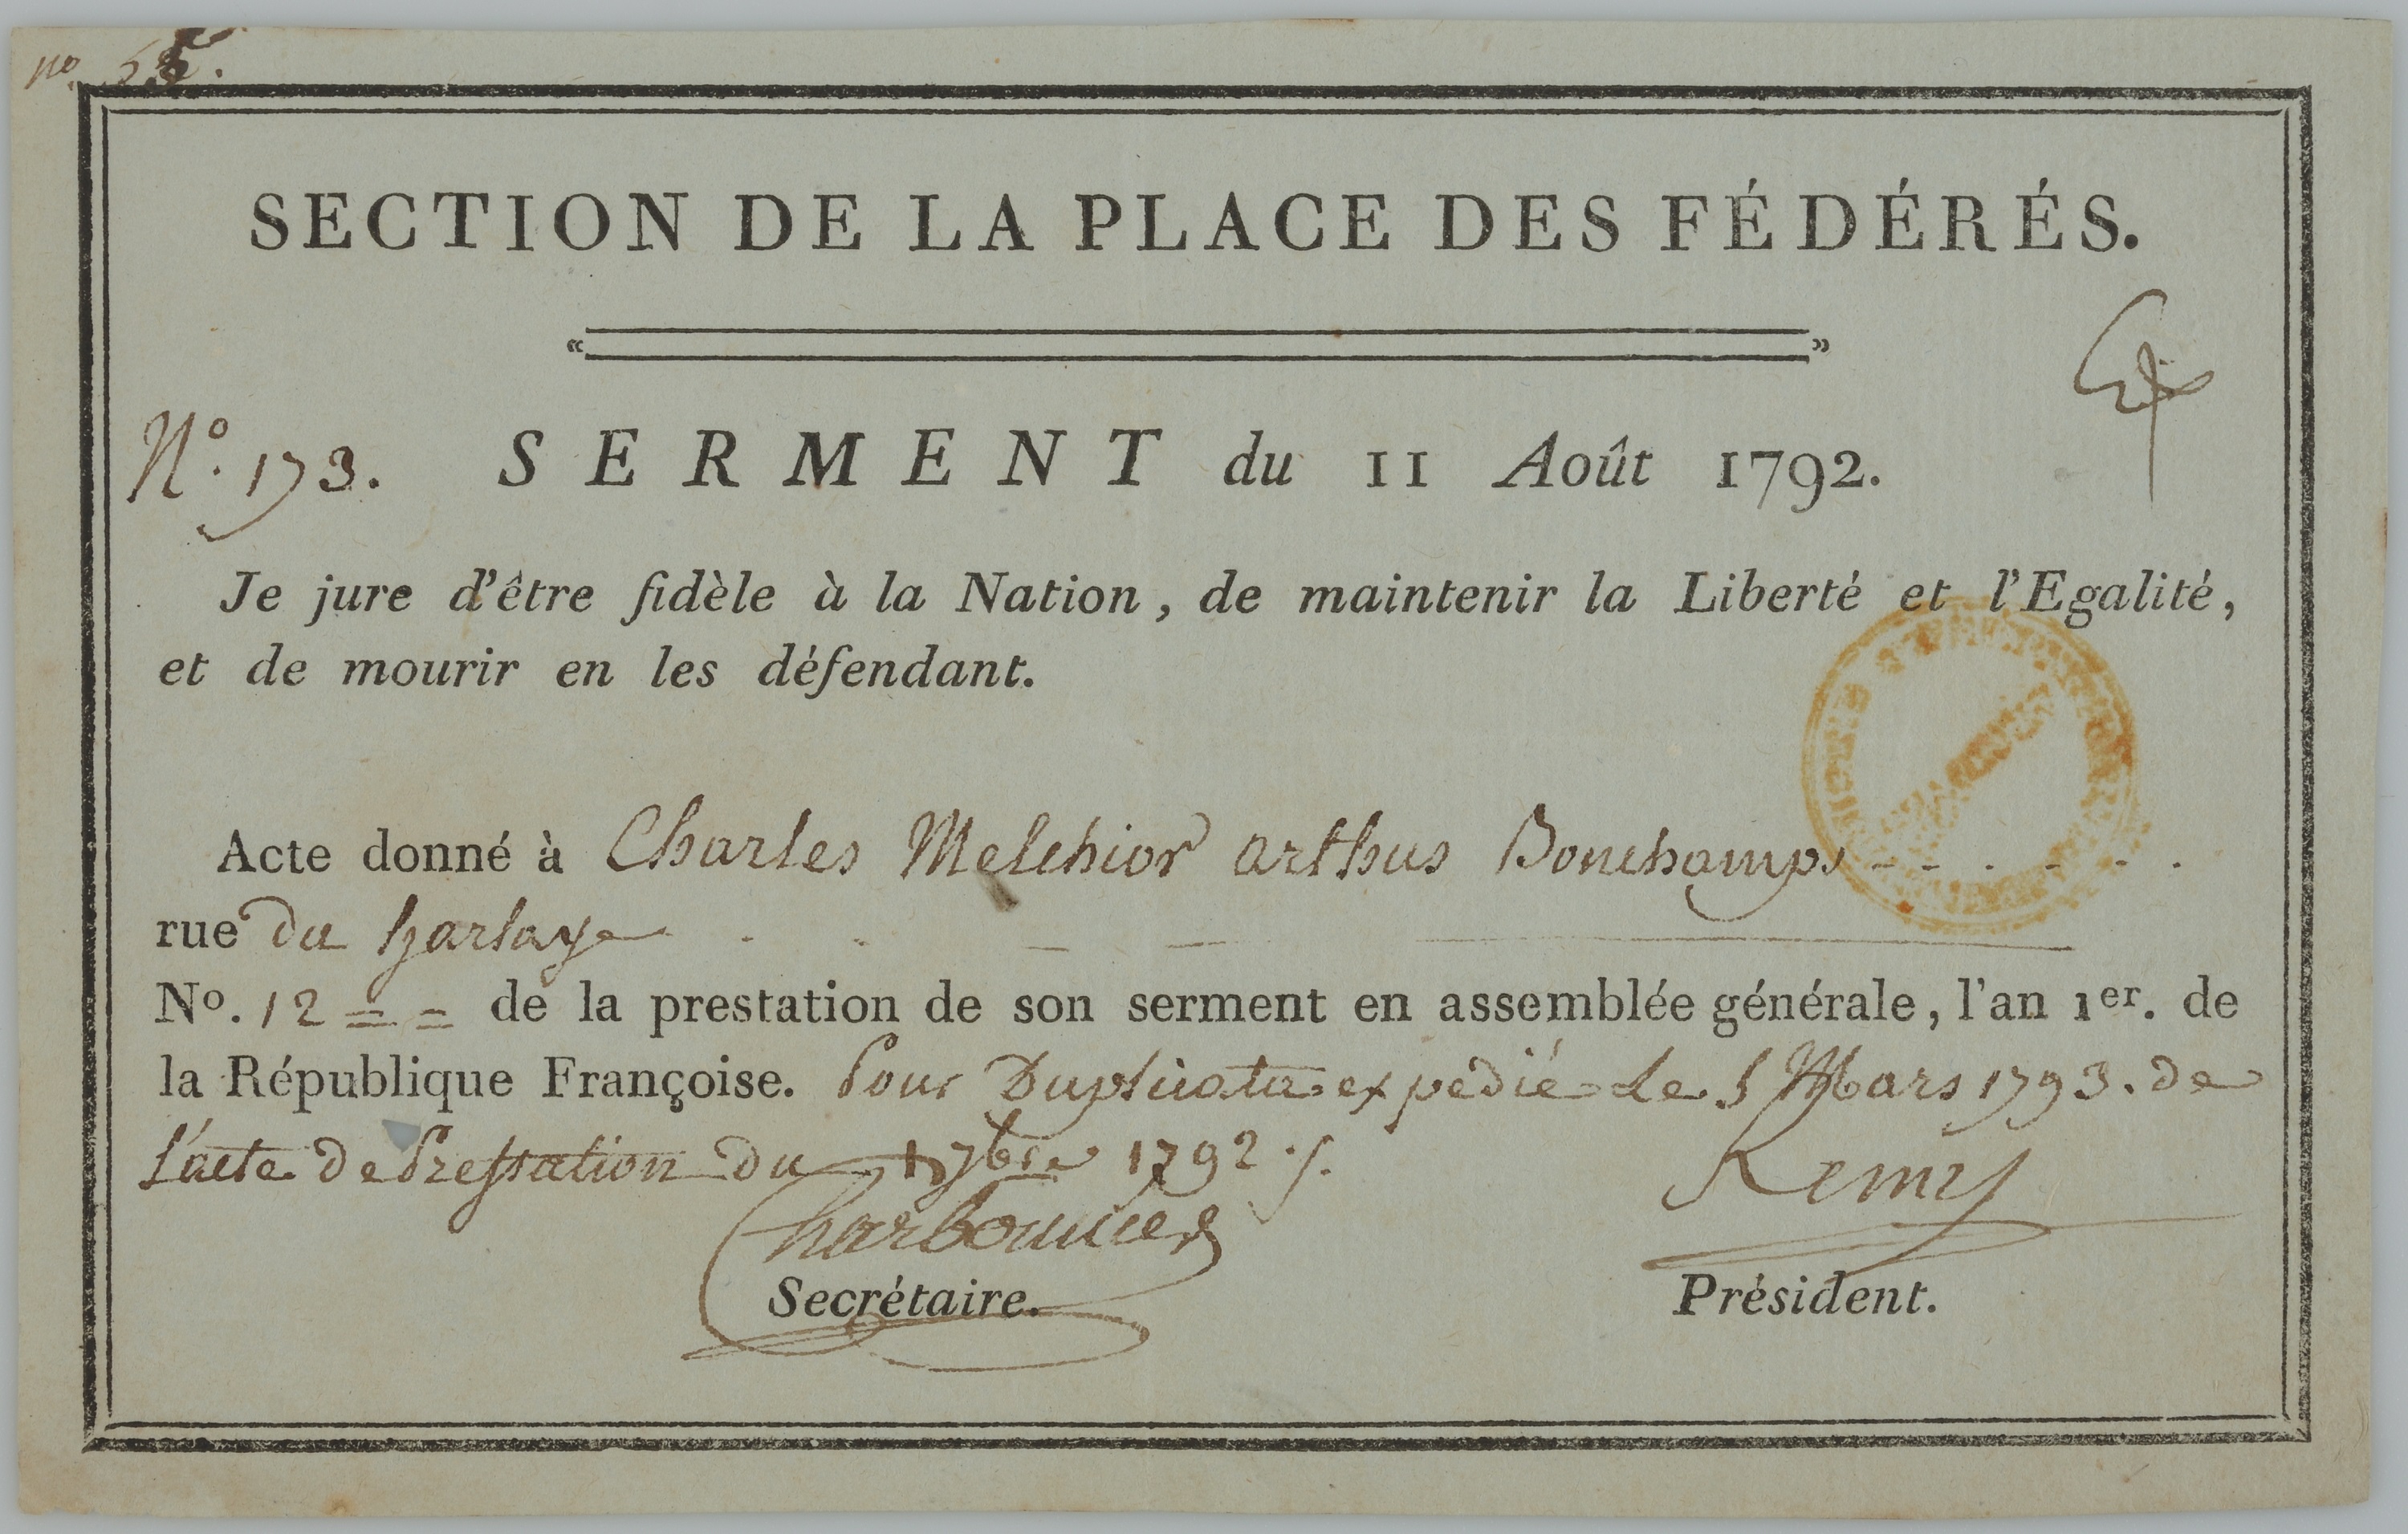 no.
SECTION DE LA PLACE DES FÉDÉRÉS.
No. 173. SERMENT du 11 Août 1792.
Je jure d'être fidèle à la Nation, de maintenir la Liberté et l'Egalité,
et de mourir en les défendant.
Acte donné à Charles Melchior arthus Bonchamps
rue du harlaye
No. 12 = = de la prestation de son serment en assemblée générale, l'an 1er. de
la République Françoise. Pour Duplicata expedié Le 5 Mars 1793. de
L'acte de Prestation du 7bre 1792
Charbonnier Remy
Secrétaire. Président.